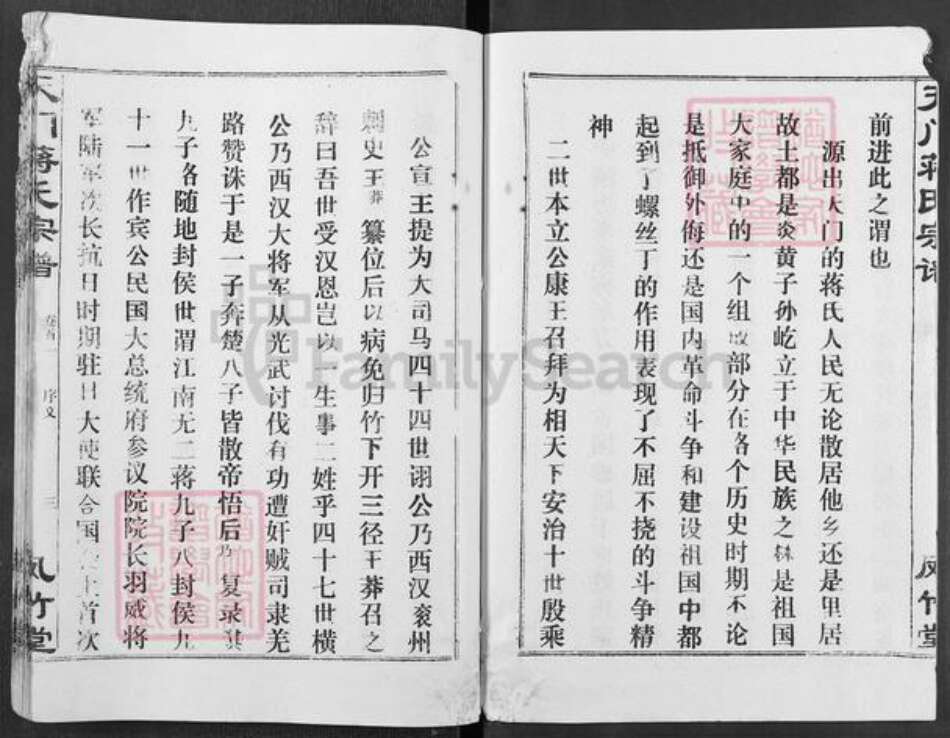 天门蒋氏宗谱
凤竹堂
前进此之谓也
源出天门的蒋氏人民无论散居他乡还是里居
故土都是炎黄子孙屹立于中华民族之林是祖国
大家庭中的一个组成部分在各个历史时期不论
是抵御外侮还是国内革命斗争和建设祖国中都
起到了螺丝丁的作用表现了不屈不挠的斗争精
神
二世本立公康王召拜为相天下安治十世殷乘
公宣王提为大司马四十四世诩公乃西汉衮州
刺史王莽纂位后以病免归竹下开三径王莽召之
辞曰吾世受汉恩岂以一生事二姓乎四十七世横
公乃西汉大将军从光武讨伐有功遭奸贼司隶羌
路赞诛于是一子奔楚八子皆散帝悟后乃复录其
九子各随地封侯世谓江南无二蒋九子八封侯九
十一世作宾公民国大总统府参议院院长羽威将
军陆军次长抗日时期驻日大使联合国 士首次
天门蒋氏宗谱
卷首
序文
三
凤竹堂
FamilySearch